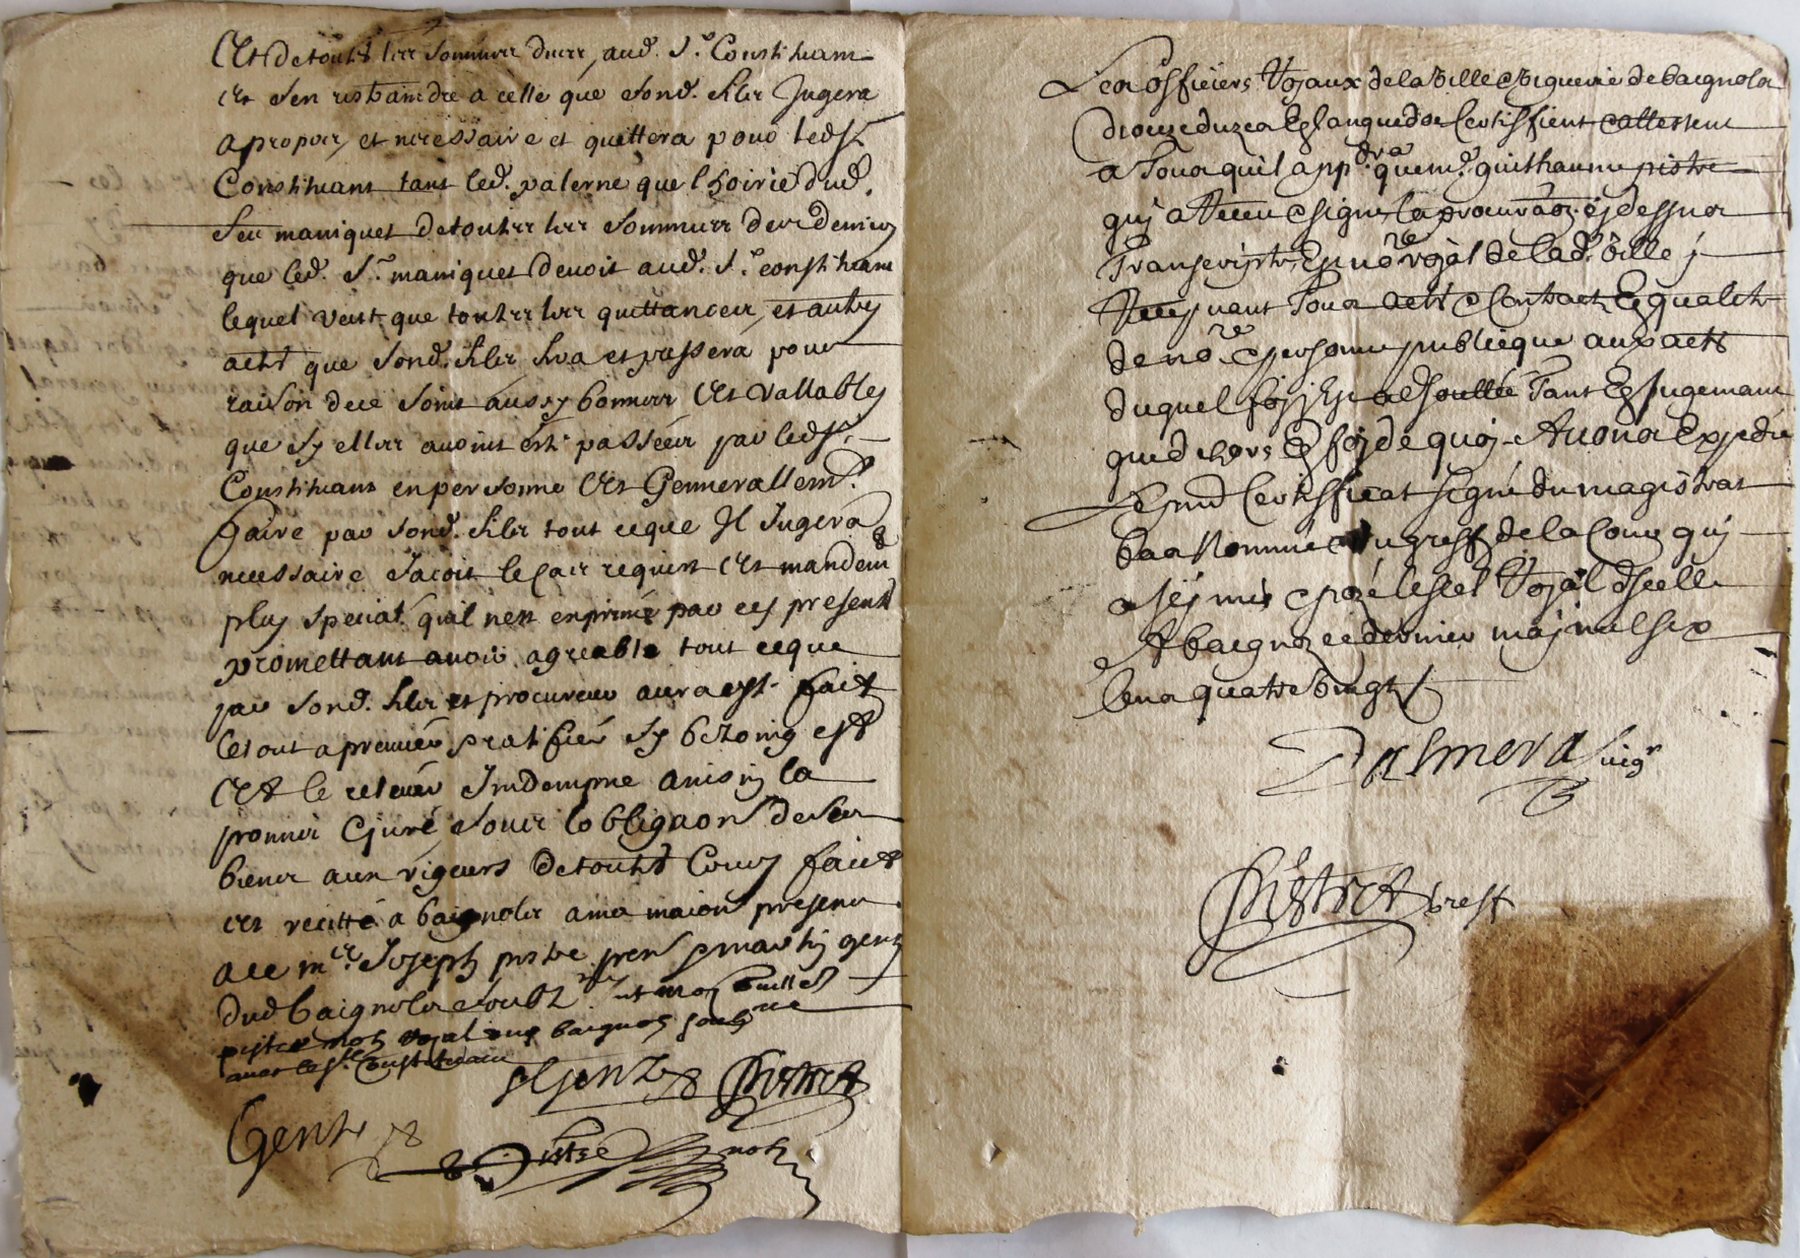 Et de toutes les sommes dues, aud. Sr. Constituant
et sen restraindre a celle que sond. filz Jugera
a propos, et necessaire et quittera pour ledst
Constituant tant led. palerne que lhoirie dud.
feu maniquet de toutes les sommes de deniers
que led. Sr. maniquet devoit aud. Sr. constituant
lequel veut que toutes les quittances, et autres
actes que sond. filz fera et passera pour
raison de ce soint aussy bonnes Et vallables
que sy elles avoint esté passées par ledst.
Constituant en personne Et Generallemt.
faire par sond. filz tout ce que Il Jugera
necessaire Jacoit le cas requist Et mandemt
plus special quil nest exprimé par ces presentes
promettant avoir agreable tout ce que
par sond. filz et procureur aura esté fait
le tout apreuver ratifier sy bezoing est
Et le relever Indempne ainsin la
promis e juré soubz lobligaon de ses
biens aux rigueurs de toutes Cours faict
et recitté a baignolz a ma maison presents
a ce me. Joseph pistre pen e martin gente
dud baignolz soubznes et moy guilles
pistre note royal dud baignolz soubzne
avec le sr. Constituant
Gente Pistre
Gente Pistre note
Les officiers Royaux de la ville e viguerie de baignolz
dioceze duzes En languedoc Certiffient e attestent
a Tous quil appdra que me. guilhaume pistre
quy a Receu e signé la procuraon cy dessus
Transcripte Est nore royal de lad. ville y
Recepvant Tous actes e Contracts En qualité
de nore e personne publicque aux actes
duquel foy y Est adjouttée Tant En Jugemant
que dehors En foy de quoy Avons Expedié
Le pnt Certifficat signé du magistrat
bas Nommé e du greff. de la Cour quy
a icy mis e pozé le scel Royal dicelle
A baignolz ce dernier may mil six
Cens quatre vingt
Dasmeras vigr
Pistre greff